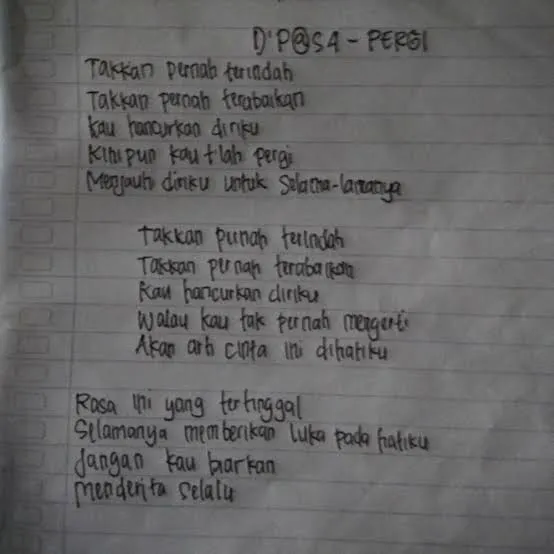 D'P@SA - PERGI
Takkan pernah terindah
Takkan pernah terabaikan
Kau hancurkan diriku
Kinipun kau t'lah pergi
Menjauh diriku untuk Selama-lamanya
Takkan pernah terindah
Takkan pernah terabaikan
Kau hancurkan diriku
Walau kau tak pernah mengerti
Akan arti cinta ini dihatiku
Rasa ini yang tertinggal
Selamanya memberikan luka pada hatiku
Jangan kau biarkan
Menderita selalu